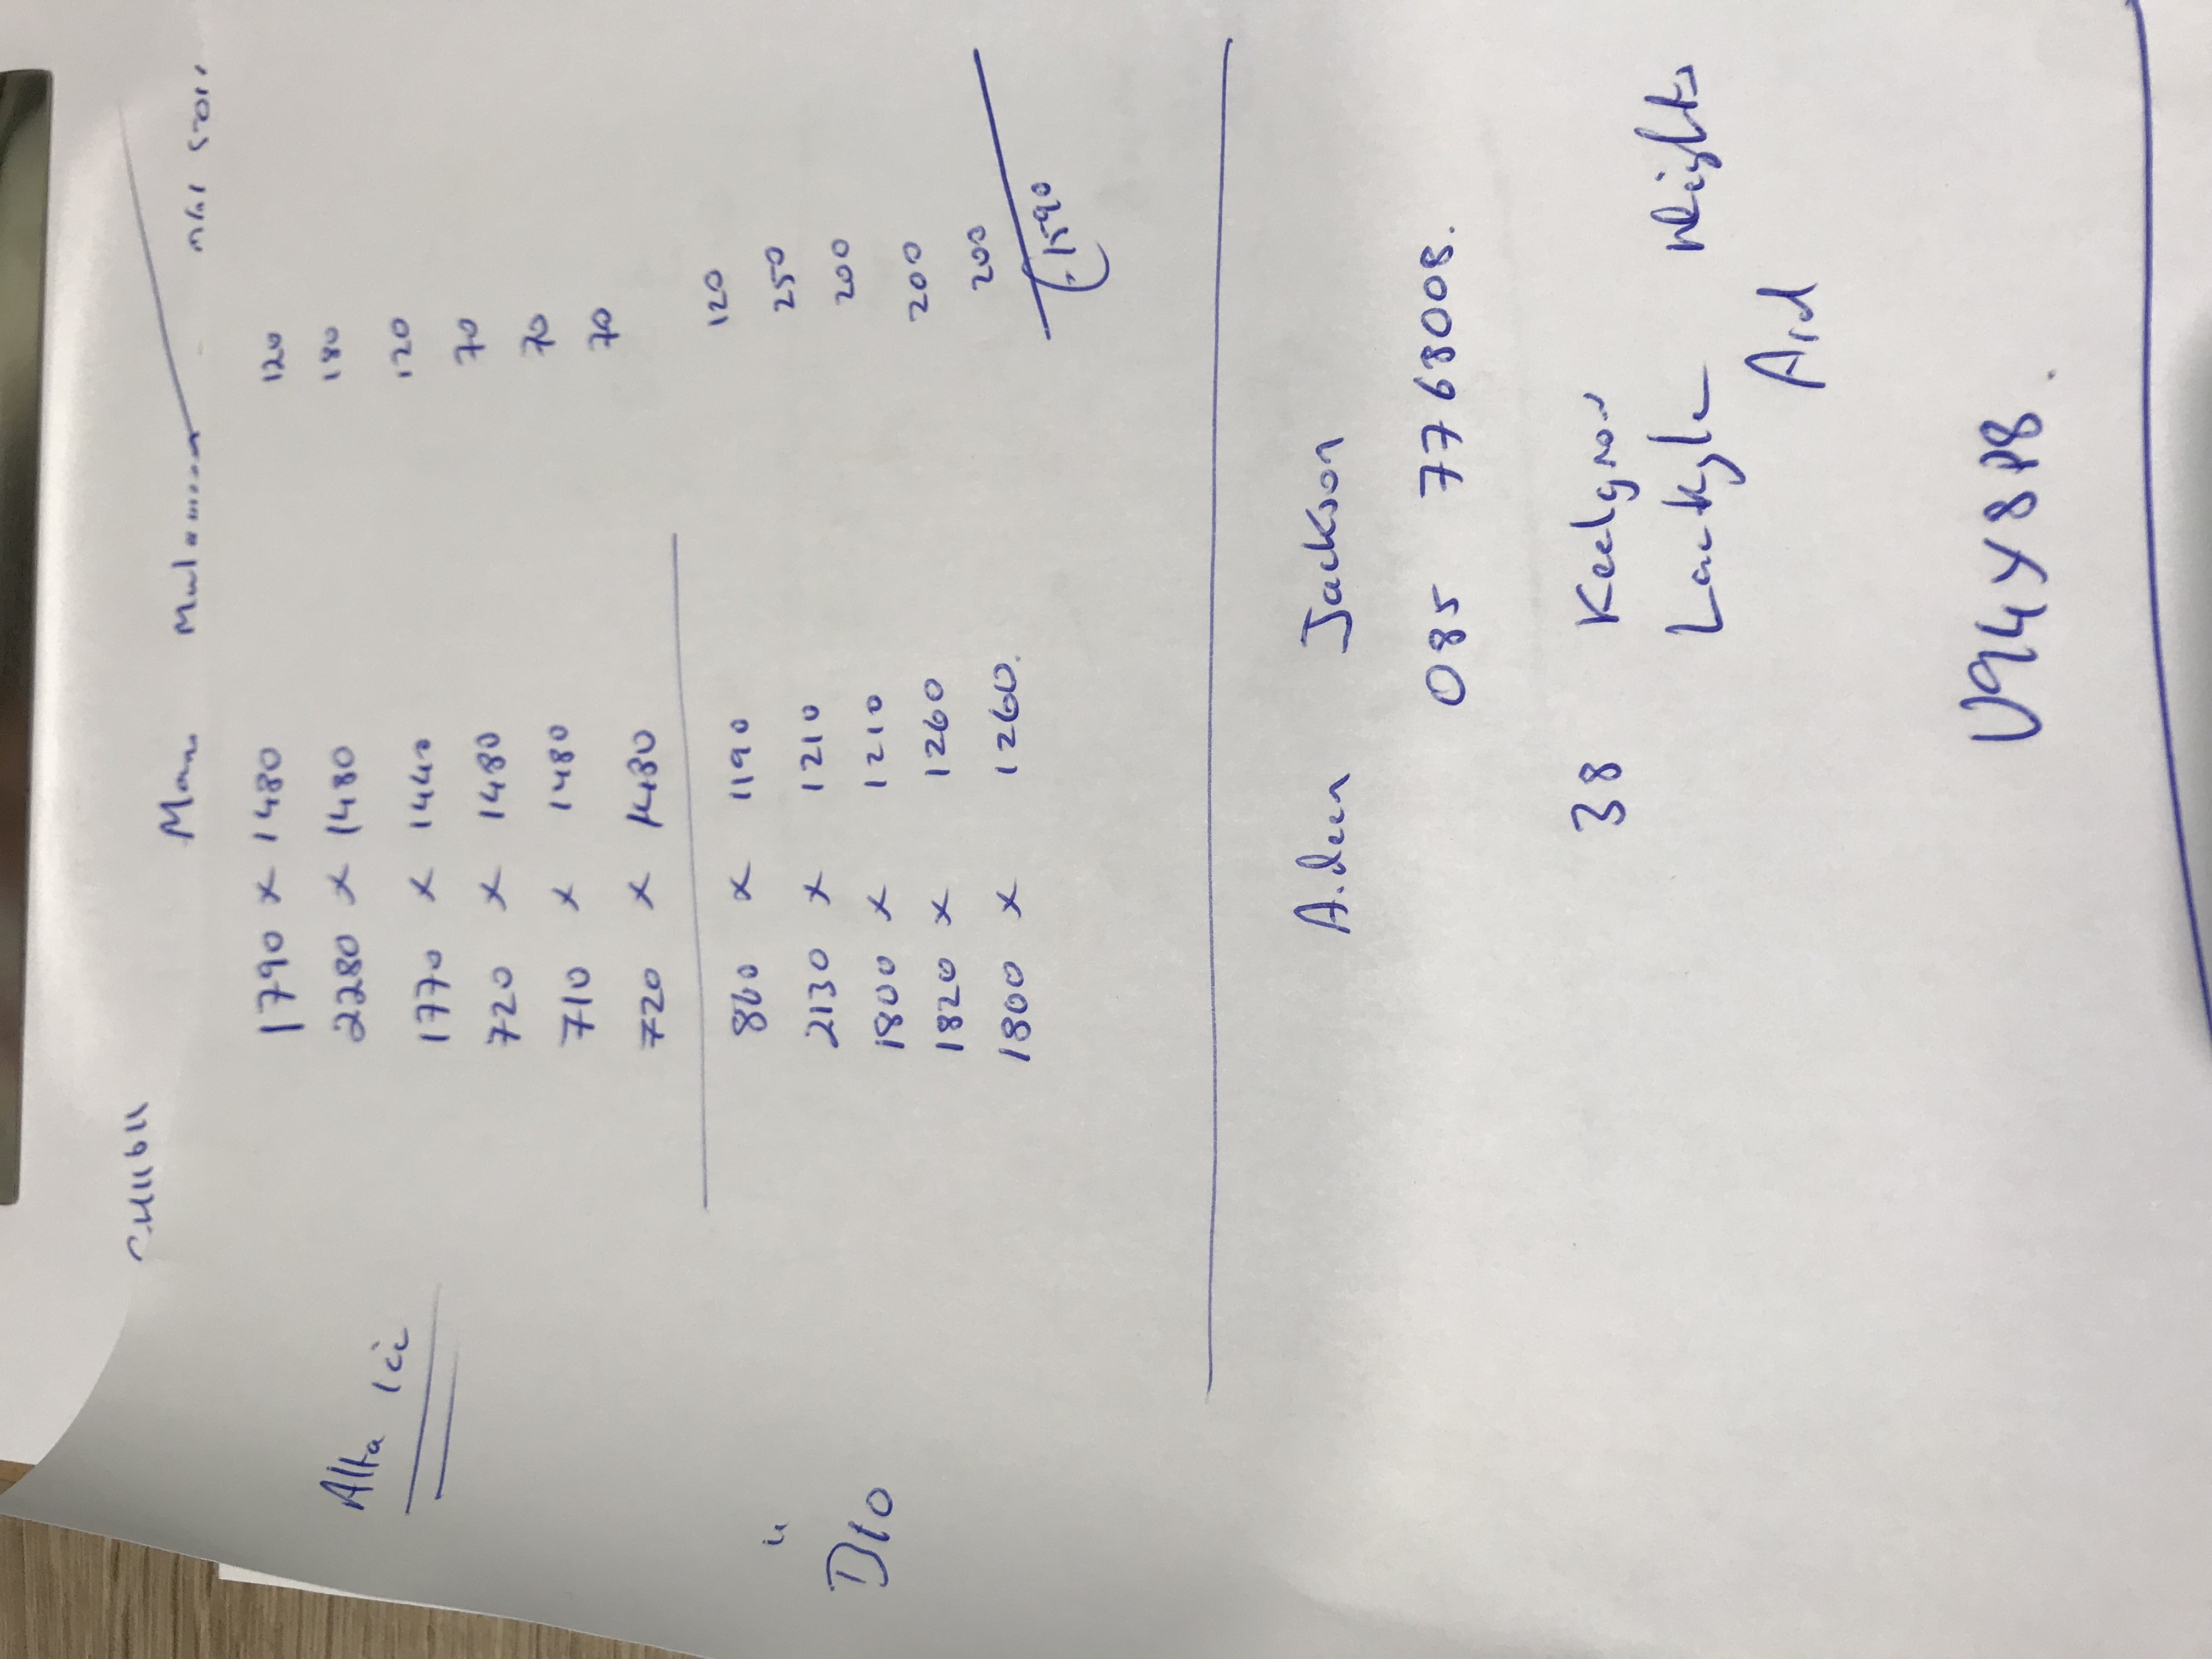 CH1161
Mary
1790 x 1480 120
Alta
2280 x 1480 180
1770 x 1440 120
720 x 1480 70
710 x 1480 70
720 x 1480 70
860 x 1190 120
2130 x 1210 250
D10
1800 x 1210 200
1820 x 1260 200
1800 x 1260. 200
1590
Aiden Jackson
085 7768008.
38
Lackyle Heights
Ard